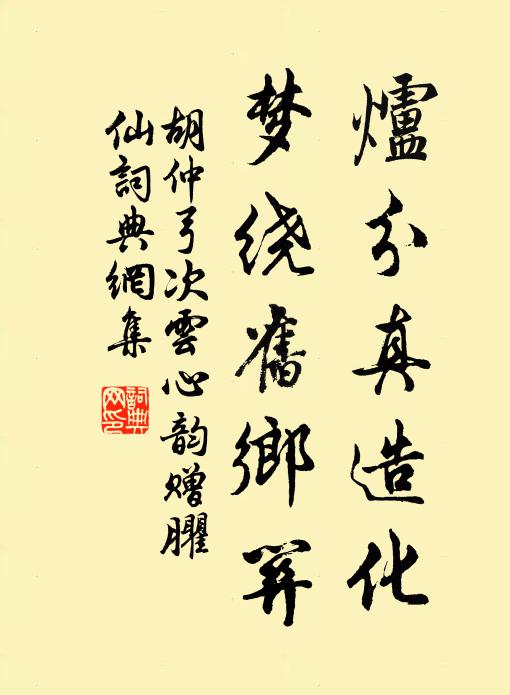 爐分真造化
梦绕舊鄉關
胡仲弓次雲心韵赠臞
仙詞典網集
詞典网印